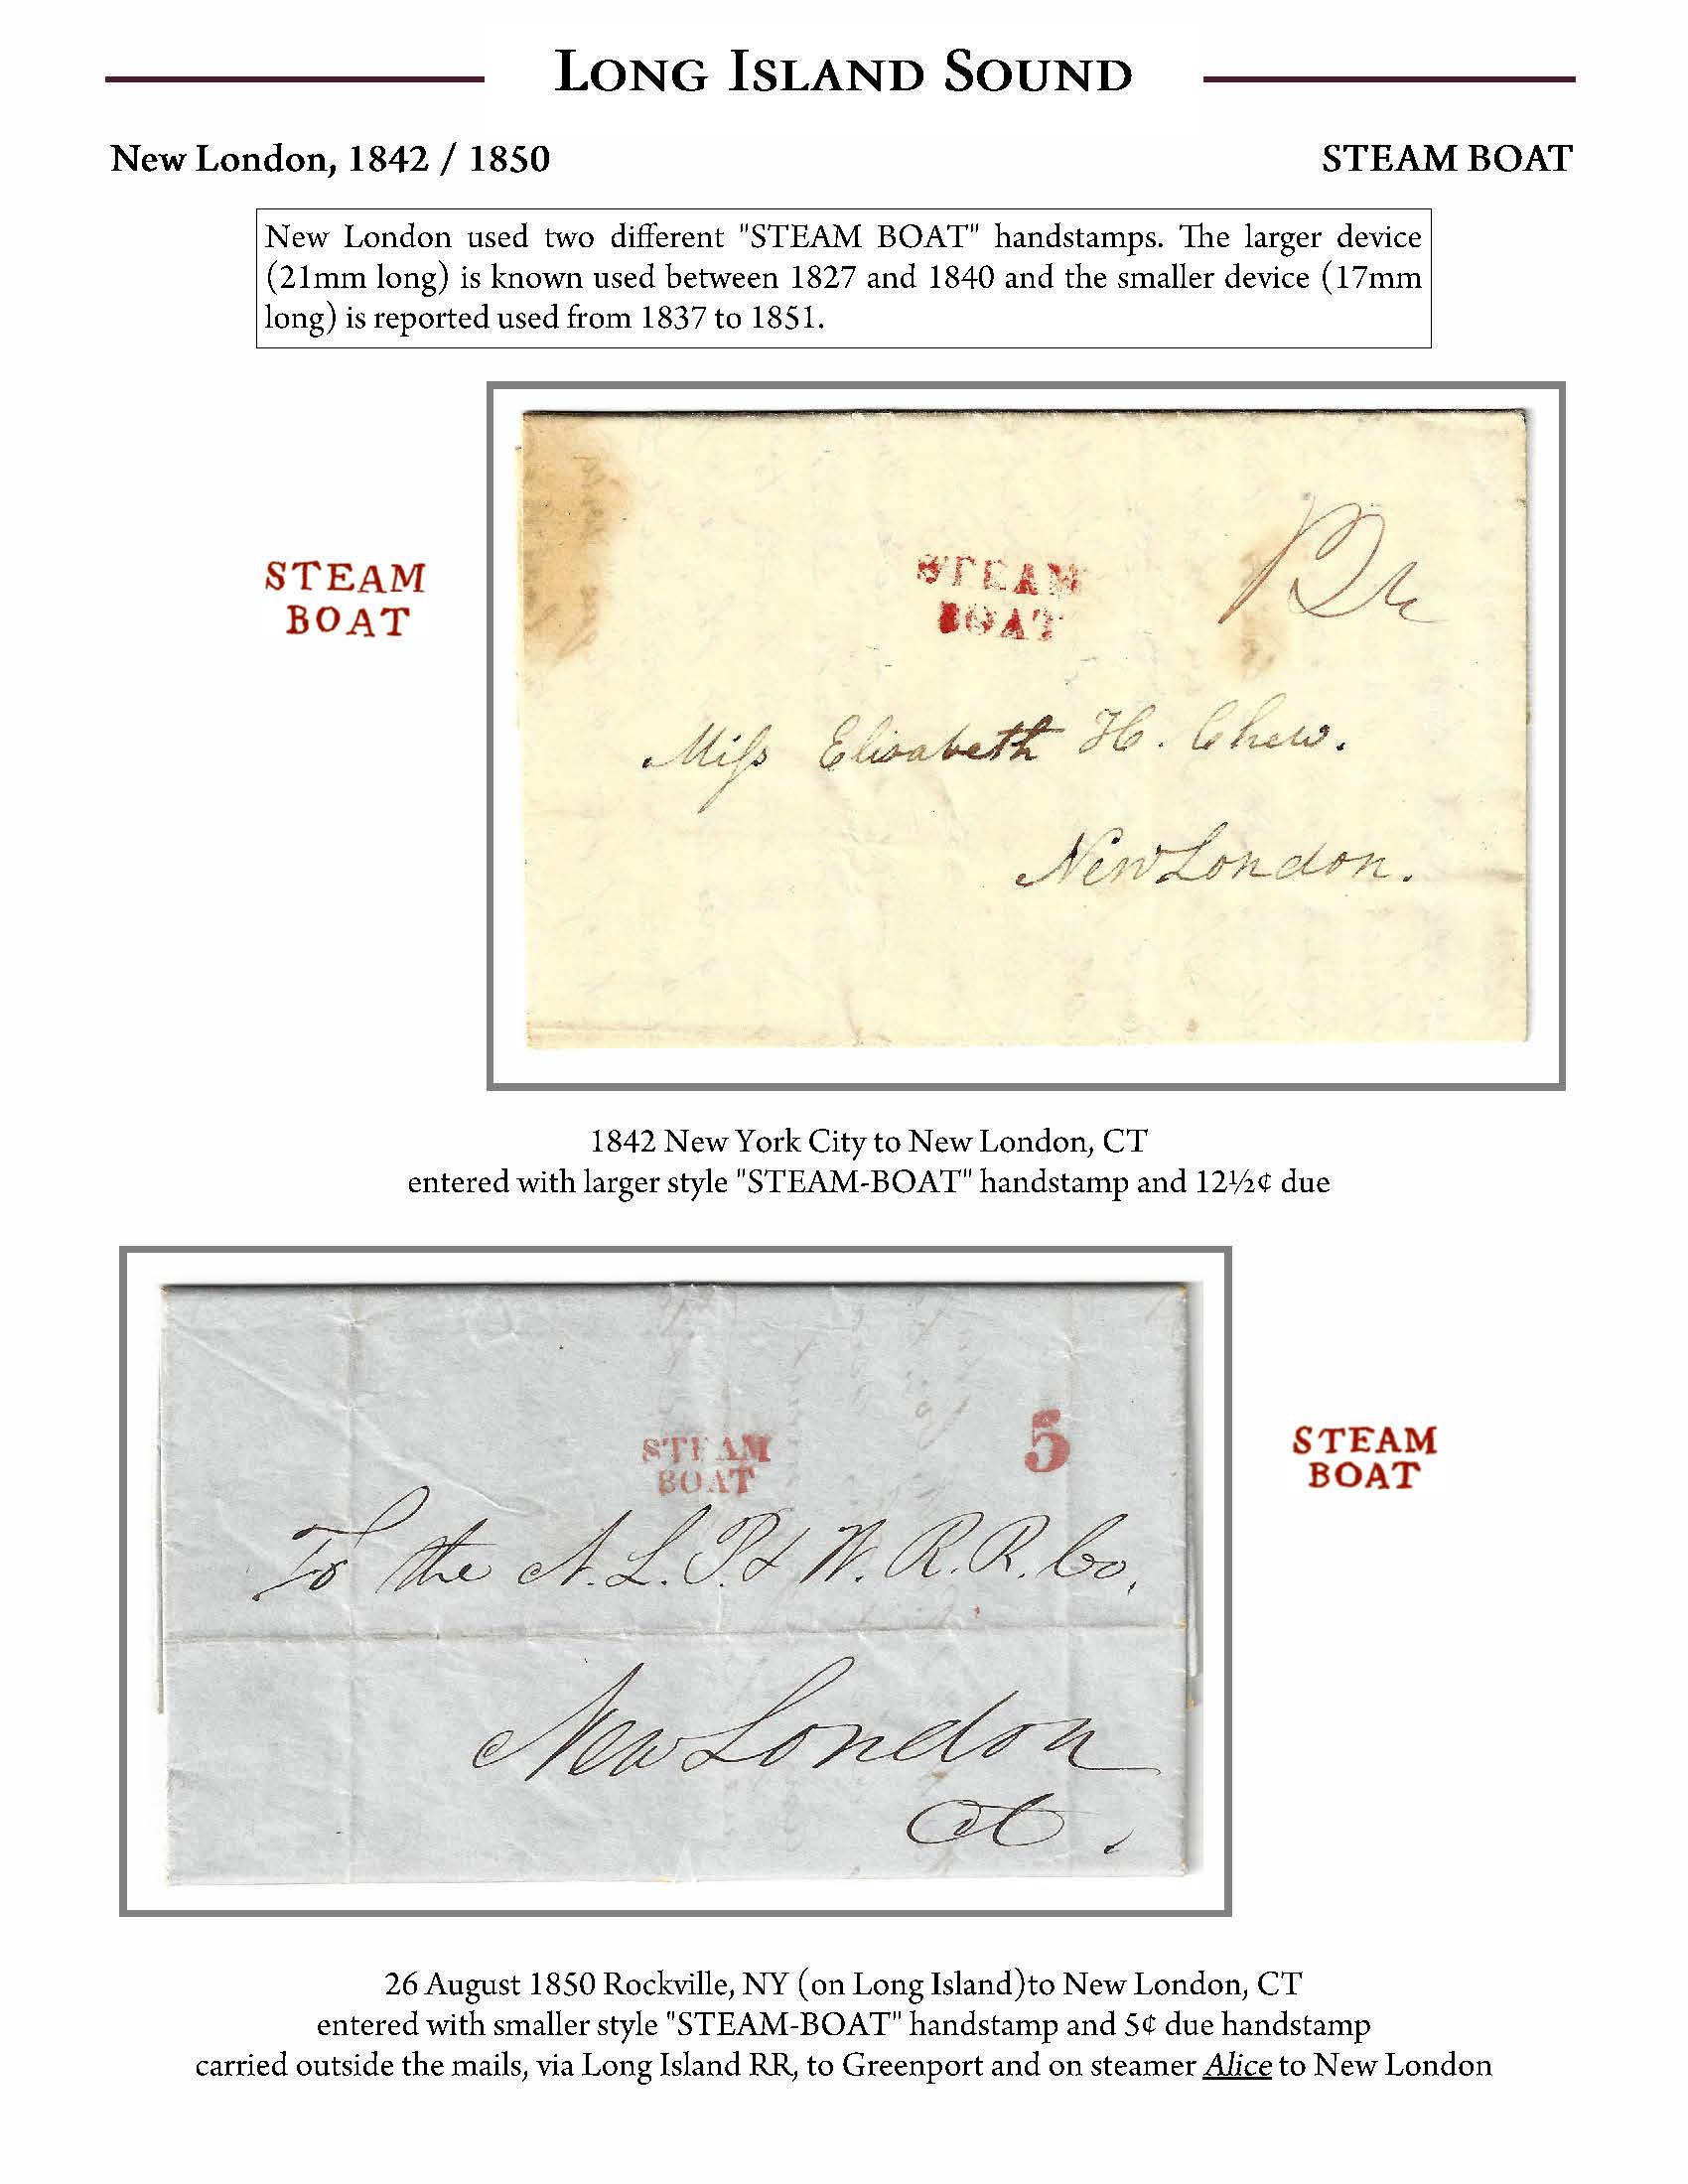 LONG ISLAND SOUND
New London, 1842 / 1850 STEAM BOAT
New London used two different "STEAM BOAT" handstamps. The larger device
(21mm long) is known used between 1827 and 1840 and the smaller device (17mm
long) is reported used from 1837 to 1851.
STEAM
BOAT
STEAM
BOAT
Miss Elisabeth H. Chew.
New London.
1842 New York City to New London, CT
entered with larger style "STEAM-BOAT" handstamp and 12½¢ due
STEAM
BOAT
5
To the N. L. P. & W. R. R. Co,
New London
Ct.
STEAM
BOAT
26 August 1850 Rockville, NY (on Long Island)to New London, CT
entered with smaller style "STEAM-BOAT" handstamp and 5¢ due handstamp
carried outside the mails, via Long Island RR, to Greenport and on steamer Alice to New London